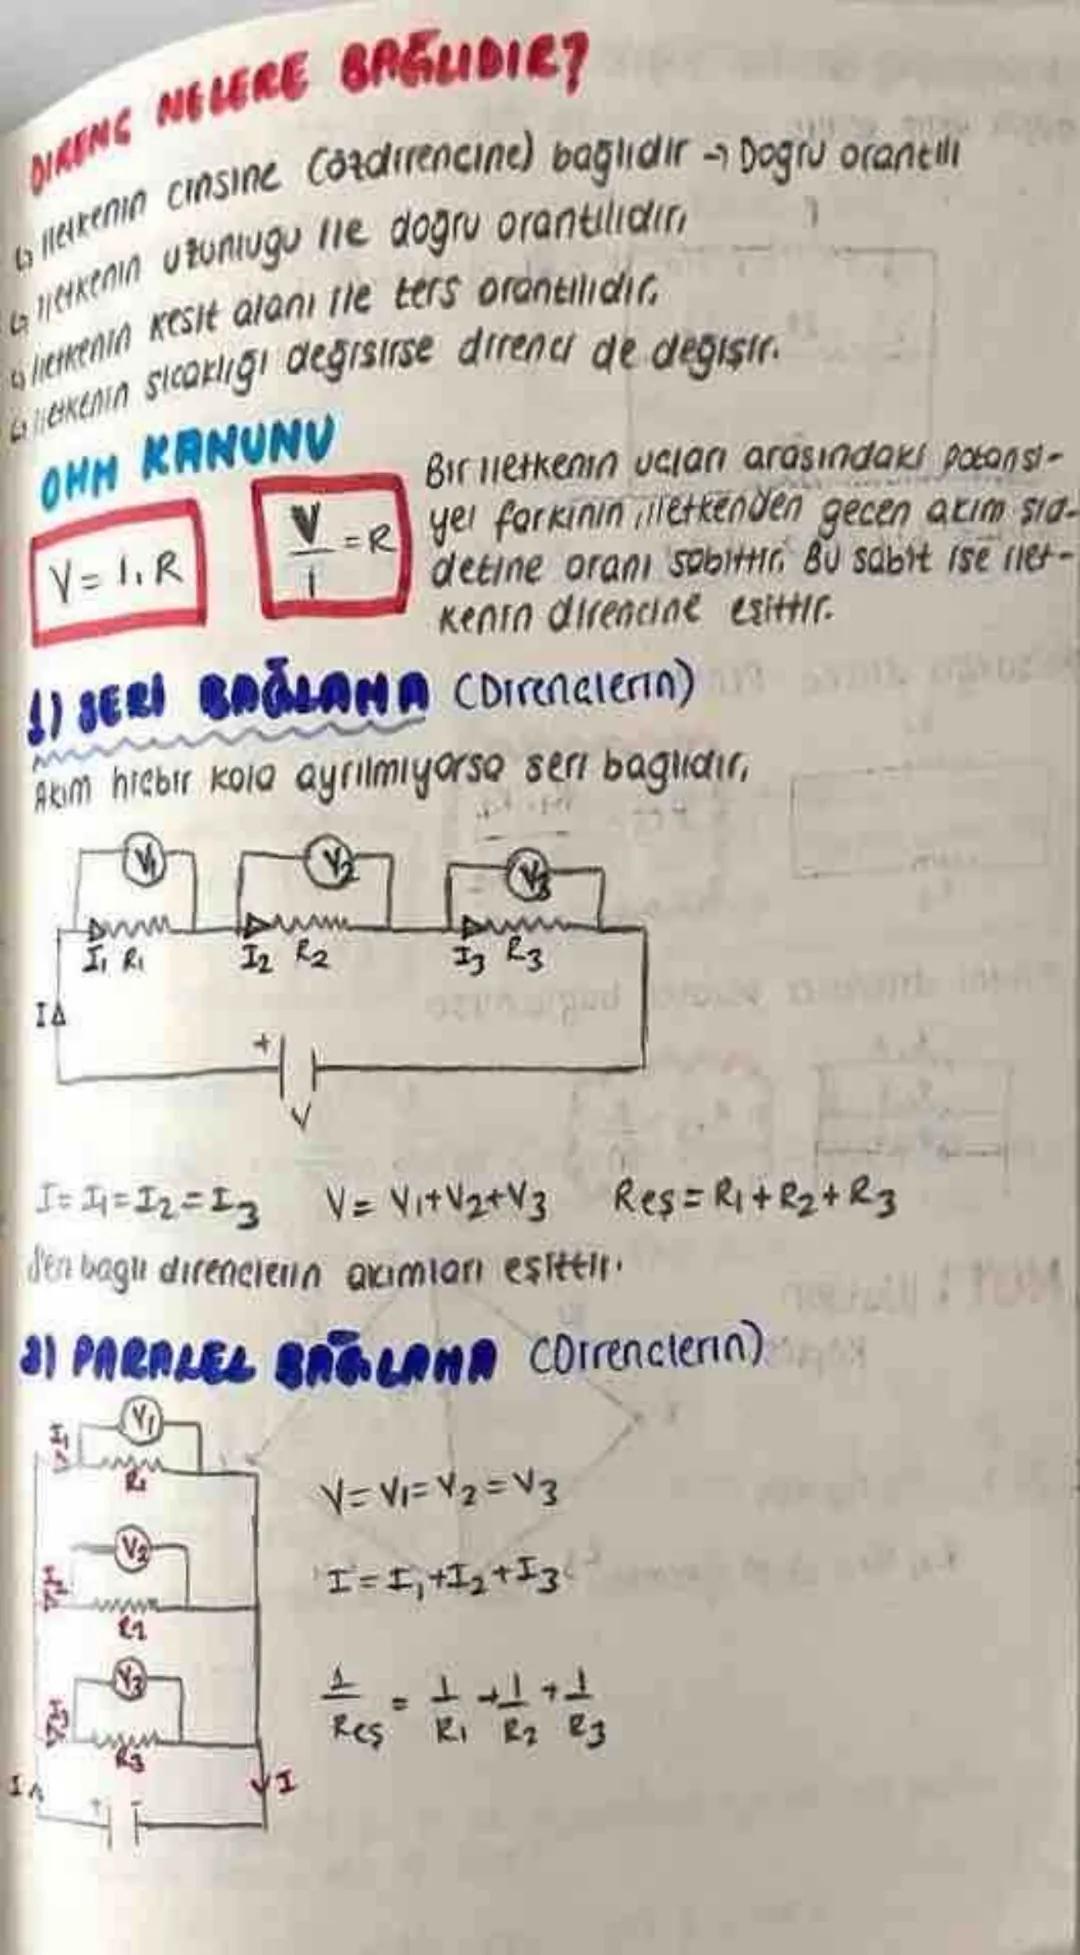 DİRENÇ NELERE BAĞLIDIR?
↳ İletkenin cinsine (özdirencine) bağlıdır → Doğru orantılı
↳ İletkenin uzunluğu ile doğru orantılıdır.
↳ İletkenin kesit alanı ile ters orantılıdır.
↳ İletkenin sıcaklığı değişirse direnci de değişir.
OHM KANUNU
V = I.R
V/I = R
Bir iletkenin uçları arasındaki potansi-
yel farkının iletkenden geçen akım şid-
detine oranı sabittir. Bu sabit ise ilet-
kenin direncine eşittir.
1) SERİ BAĞLAMA (Dirençlerin)
Akım hiçbir kola ayrılmıyorsa seri bağlıdır.
V1 V2 V3
I1 R1 I2 R2 I3 R3
I
+
V
I = I1 = I2 = I3 V = V1+V2+V3 Reş = R1+R2+R3
Seri bağlı dirençlerin akımları eşittir.
2) PARALEL BAĞLAMA (Dirençlerin)
V1
I1
R1
V = V1 = V2 = V3
V2
I2
R2
I = I1+I2+I3
V3
I3
R3
1/Reş = 1/R1 + 1/R2 + 1/R3
I I
+ -